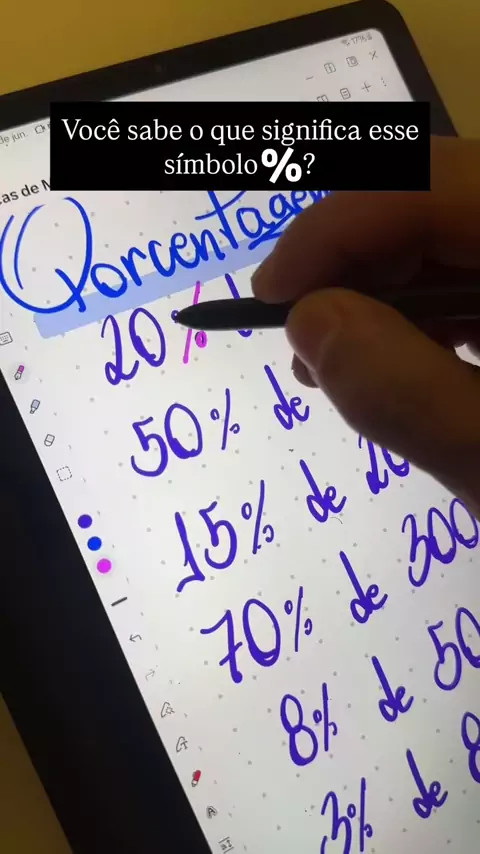 17%
de jun.
Você sabe o que significa esse
símbolo%?
cas de
Porcentagem
20%
50% de
15% de 20
70% de 300
8% de 50
3% de 8